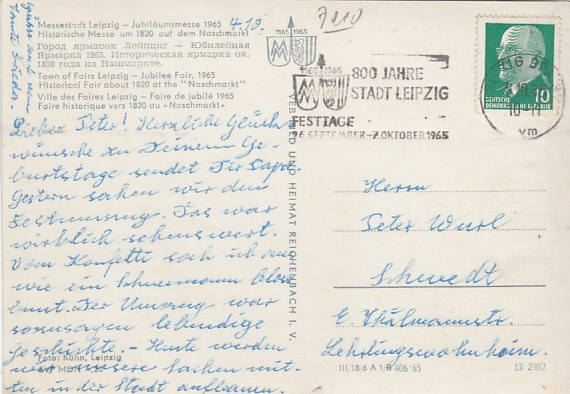 Messestadt Leipzig — Jubiläumsmesse 1965
Historische Messe um 1820 auf dem Naschmarkt
Город ярмарок Лейпциг — Юбилейная
Ярмарка 1965. Историческая ярмарка ок.
1820 года на Нашмаркте.
Town of Fairs Leipzig - Jubilee Fair, 1965
Historical Fair about 1820 at the "Naschmarkt"
Ville des Foires Leipzig — Faire de jubilé 1965
Faire historique vers 1820 au «Naschmarkt»
4.10.
Lieber Peter! Herzliche Glück
wünsche zu Deinem Ge-
burtstage sendet Dir
Gestern sahen wir den
Festumzug. Das war
wirklich sehenswert.
Vom Konfetti sah ich aus
wie ein Schneemann bloß
bunt. Der Umzug war
sozusagen lebendige
Geschichte. - Heute werden
wir unsere Sachen mit-
ten in der Stadt aufbauen.
Grüße auch von
Tante
Foto: Kühn, Leipzig
VERLAG UND HEIMAT REICHENBACH I. V.
7210
1165 1965
1165 1965
800 JAHRE
STADT LEIPZIG
FESTTAGE
26. SEPTEMBER-7. OKTOBER 1965
DEUTSCHE
DEMOKRATISCHE REPUBLIK
10
10-11
vm
Herrn
Peter Wurl
Schwedt
E. Thälmannstr.
Lehrlingswohnheim.
III/18/6 A 1/B 406/65
13 2902